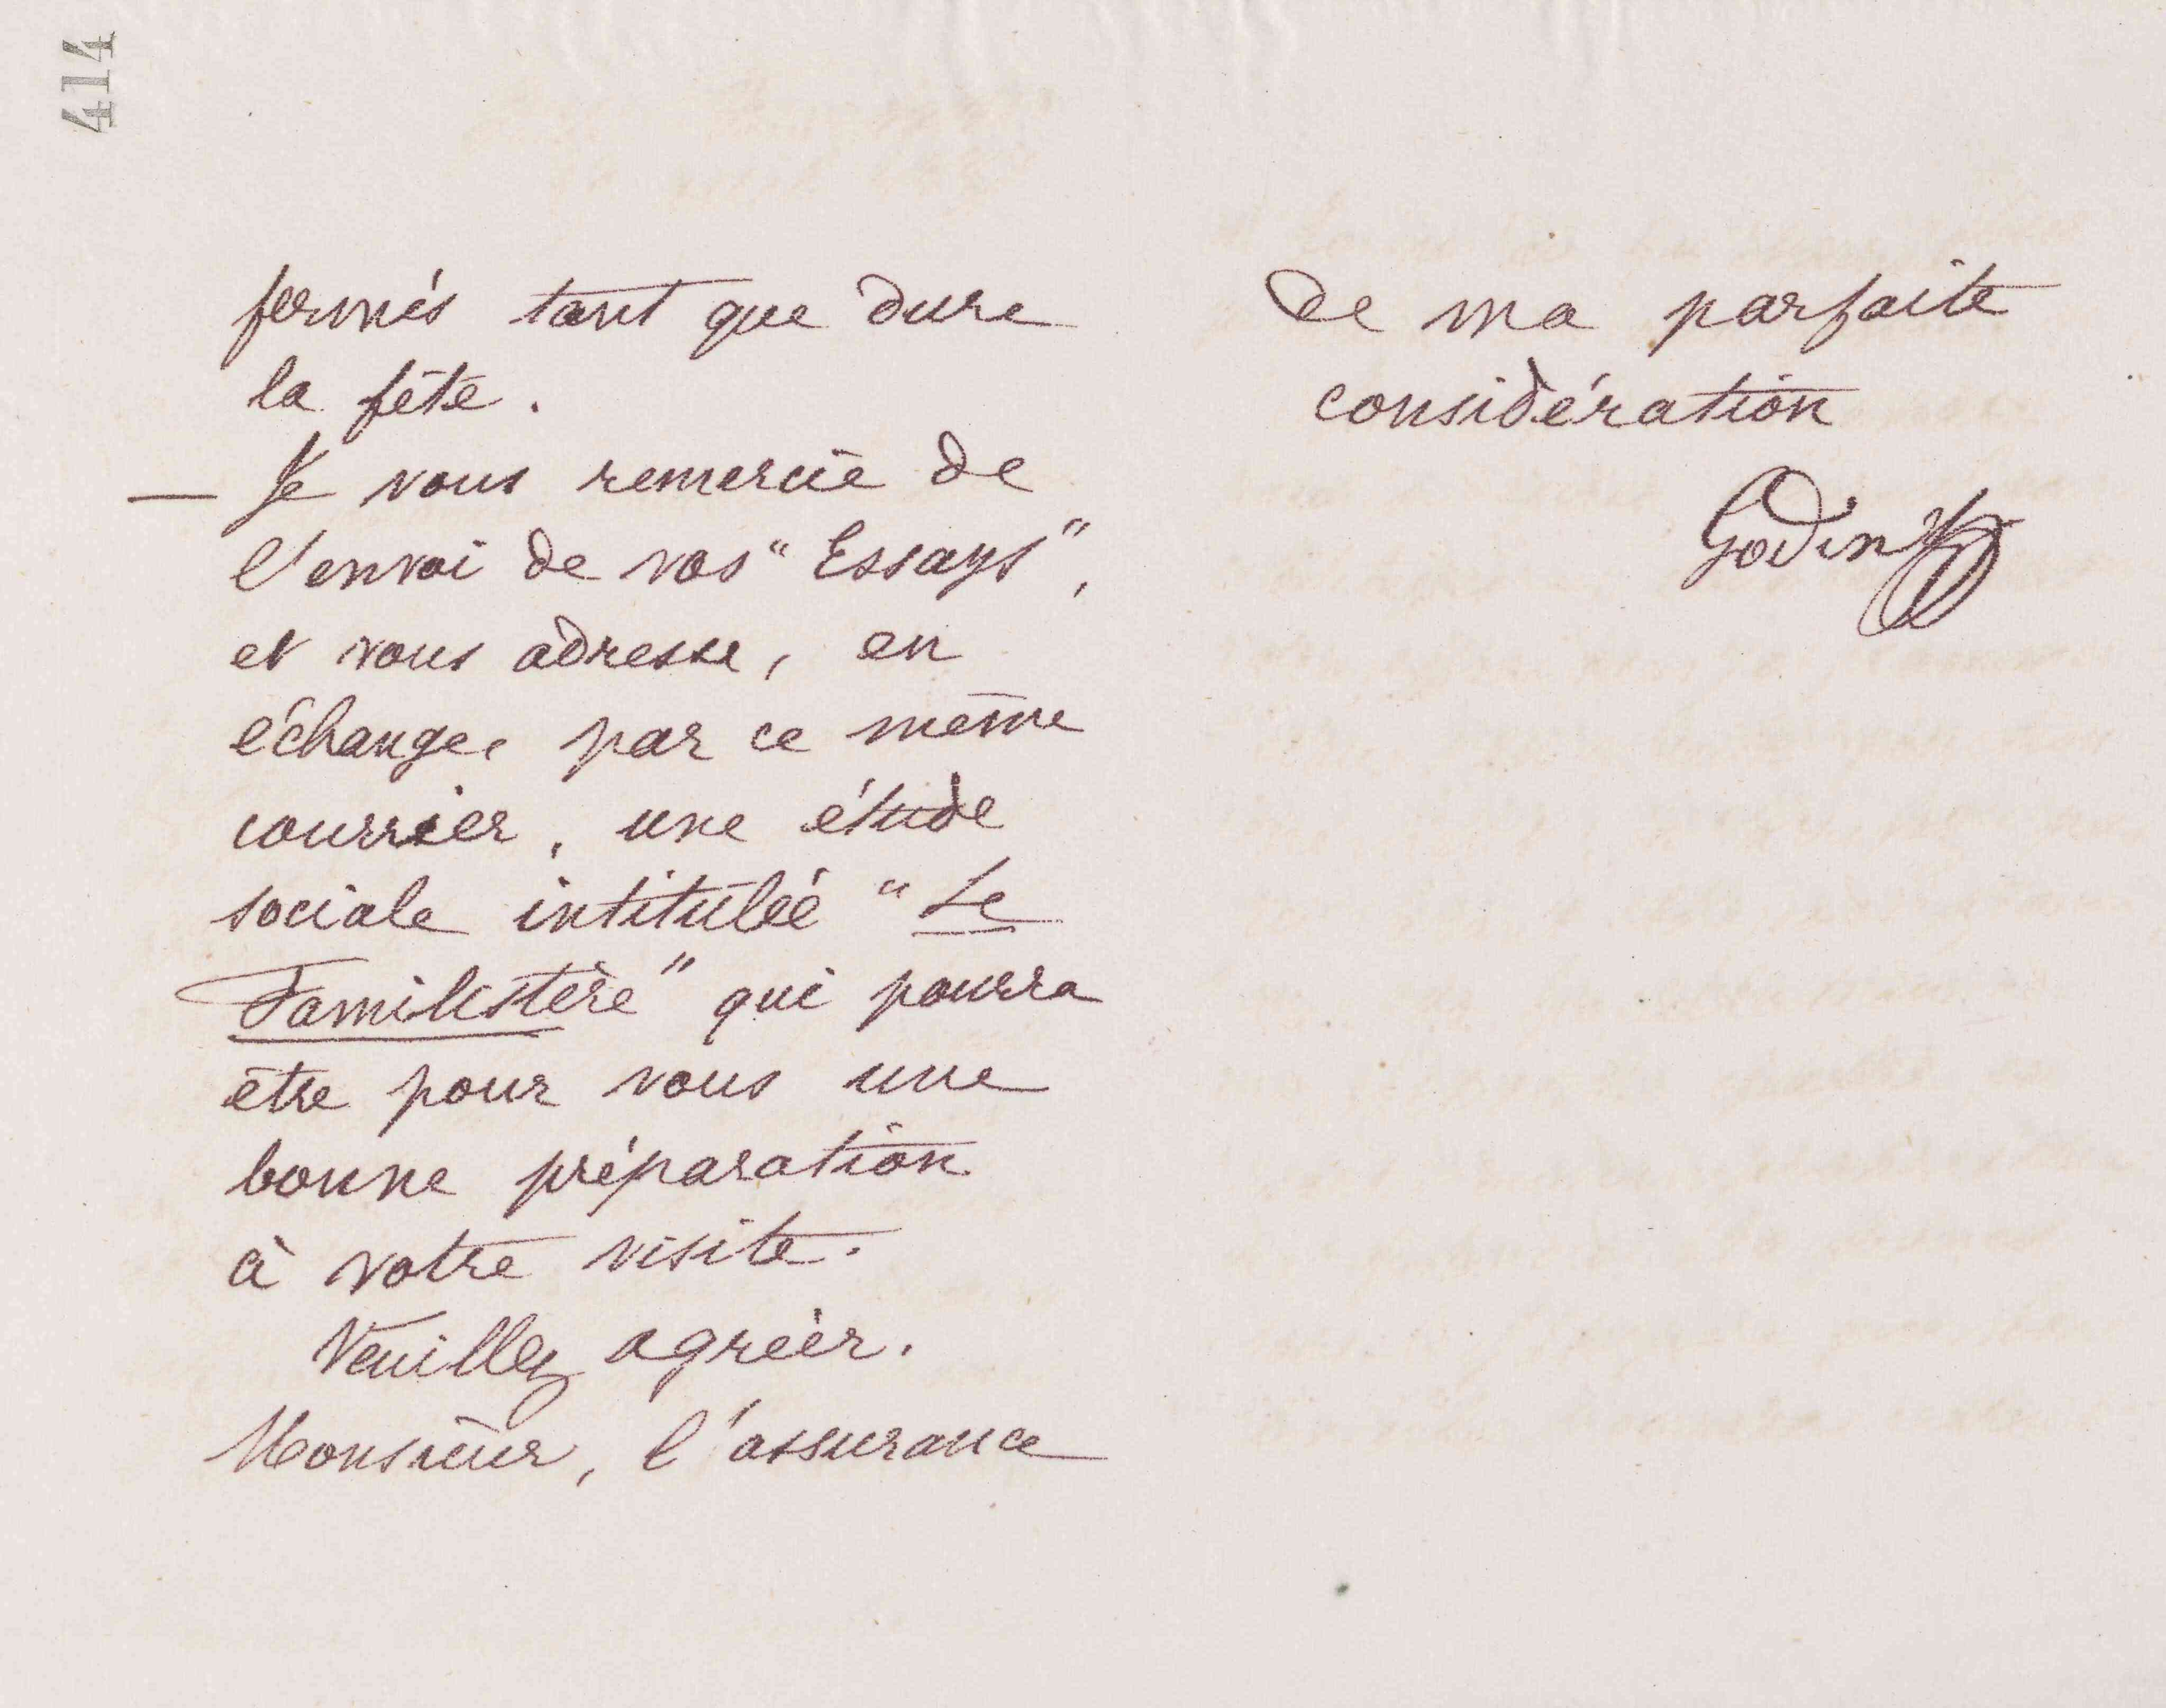 414
fermés tant que dure
la fête.
— Je vous remercie de
l'envoi de vos "Essays",
et vous adresse, en
échange, par ce même
courrier, une étude
sociale intitulée "Le
Familistère" qui pourra
être pour vous une
bonne préparation
à votre visite.
Veuillez agréer,
Monsieur, l'assurance
de ma parfaite
considération
Godin